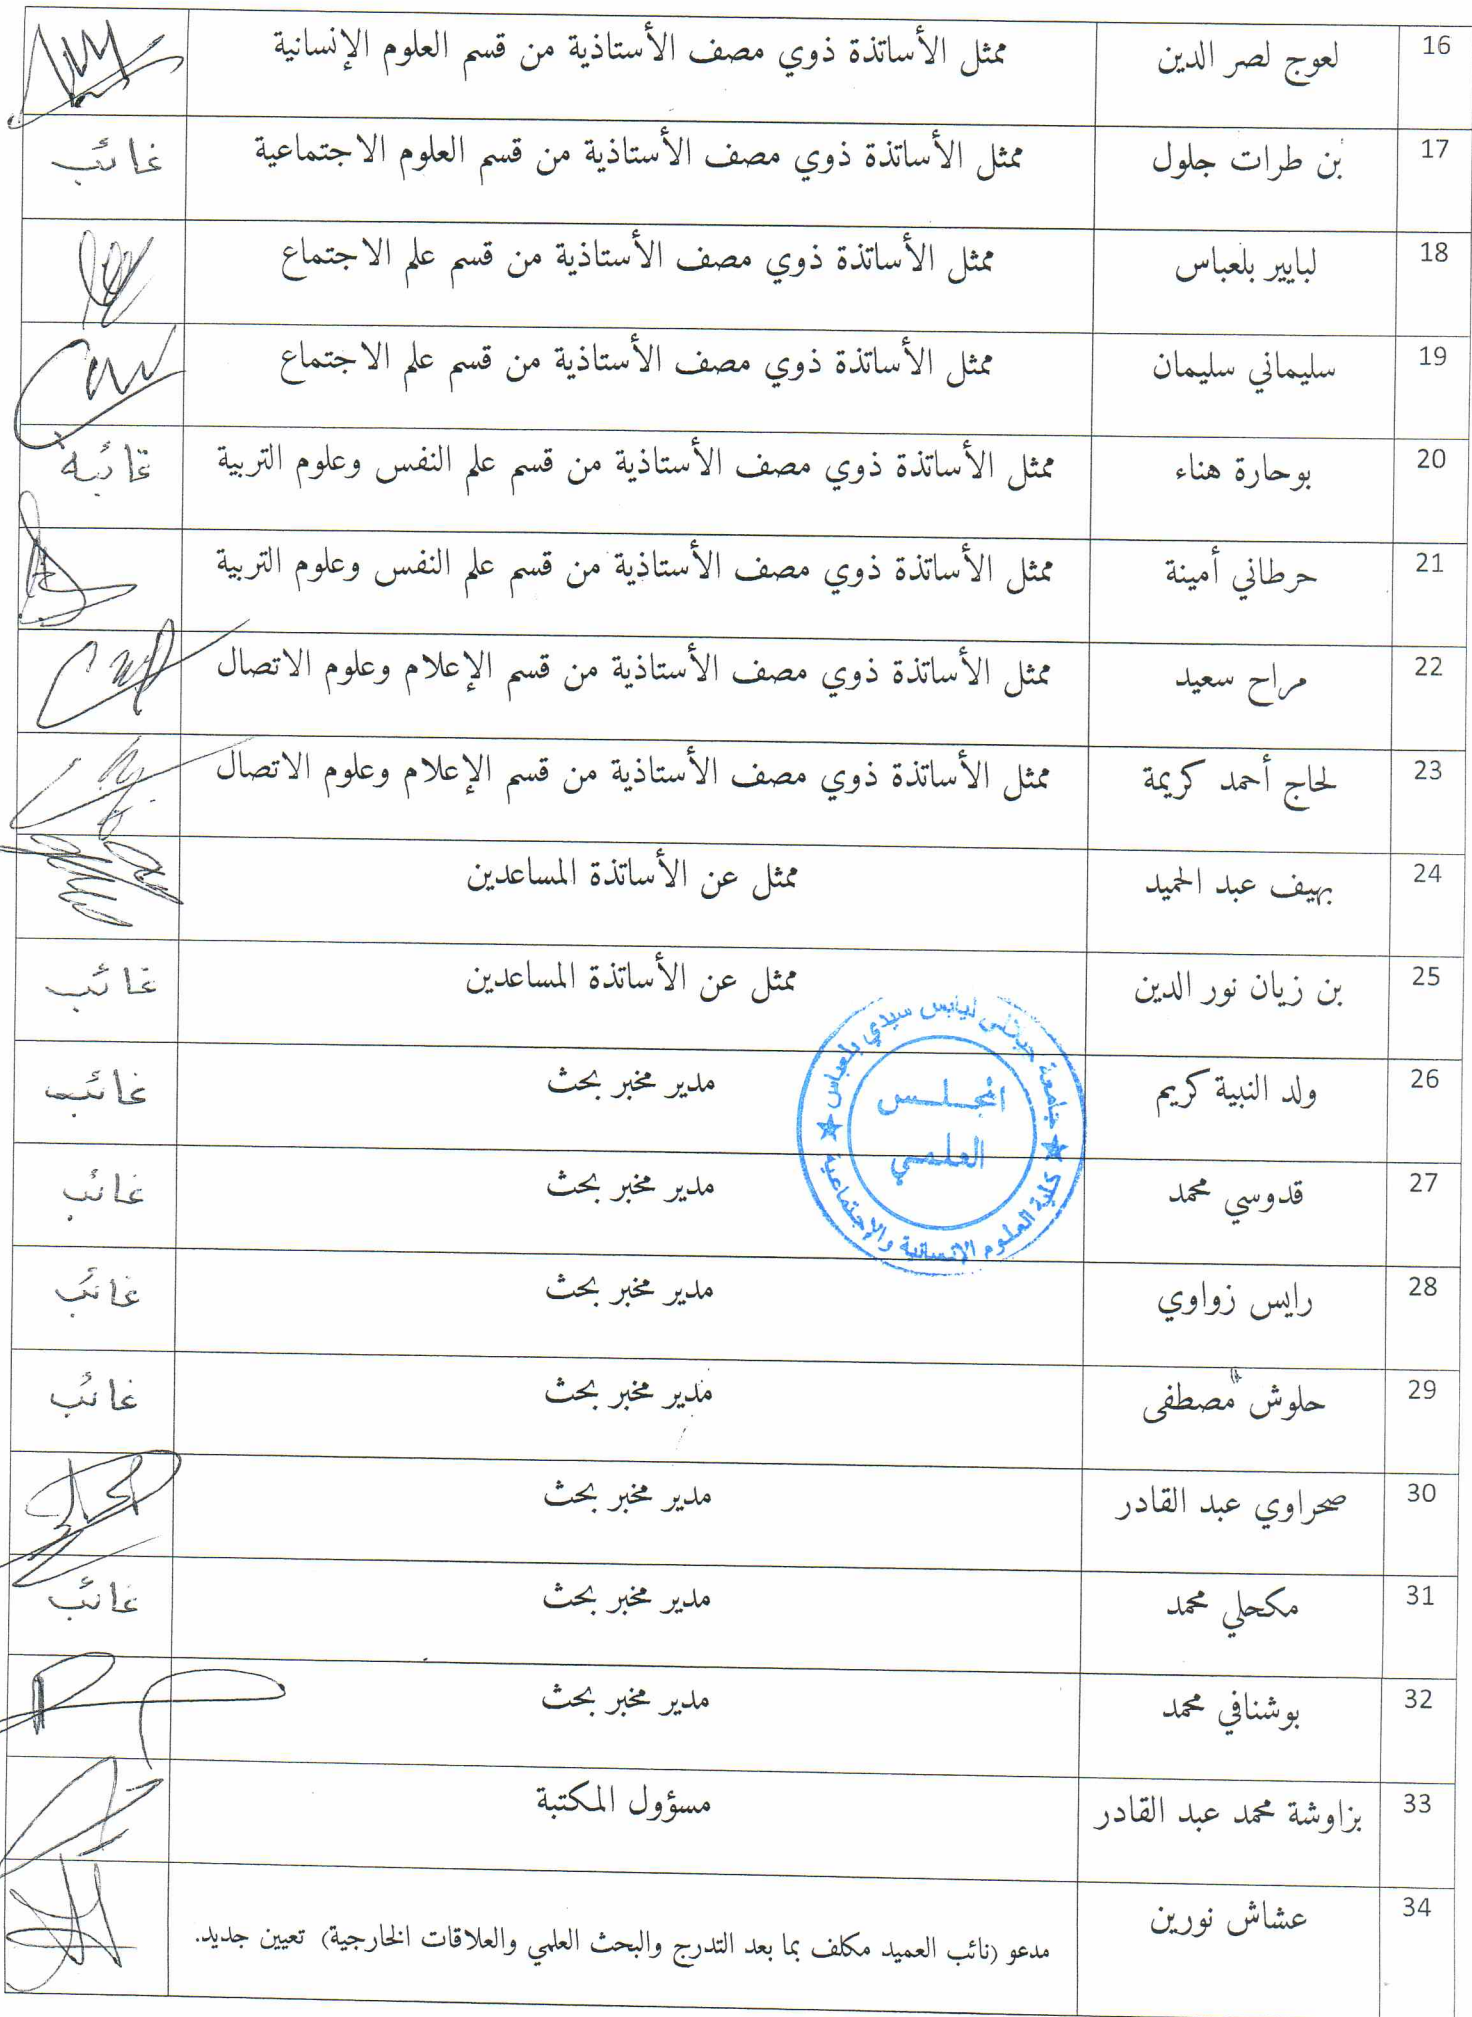 16 لعوج لصر الدين ممثل الأساتذة ذوي مصف الأستاذية من قسم العلوم الإنسانية
17 بن طرات جلول ممثل الأساتذة ذوي مصف الأستاذية من قسم العلوم الاجتماعية غائب
18 لبايير بلعباس ممثل الأساتذة ذوي مصف الأستاذية من قسم علم الاجتماع
19 سليماني سليمان ممثل الأساتذة ذوي مصف الأستاذية من قسم علم الاجتماع
20 بوحارة هناء ممثل الأساتذة ذوي مصف الأستاذية من قسم علم النفس وعلوم التربية غائبة
21 حرطاني أمينة ممثل الأساتذة ذوي مصف الأستاذية من قسم علم النفس وعلوم التربية
22 مراح سعيد ممثل الأساتذة ذوي مصف الأستاذية من قسم الإعلام وعلوم الاتصال
23 لحاج أحمد كريمة ممثل الأساتذة ذوي مصف الأستاذية من قسم الإعلام وعلوم الاتصال
24 بهيف عبد الحميد ممثل عن الأساتذة المساعدين
25 بن زيان نور الدين ممثل عن الأساتذة المساعدين غائب
26 ولد النبية كريم مدير مخبر بحث غائب
27 قدوسي محمد مدير مخبر بحث غائب
28 رايس زواوي مدير مخبر بحث غائب
29 حلوش مصطفى مدير مخبر بحث غائب
30 صحراوي عبد القادر مدير مخبر بحث
31 مكحلي محمد مدير مخبر بحث غائب
32 بوشنافي محمد مدير مخبر بحث
33 بزاوشة محمد عبد القادر مسؤول المكتبة
34 عشاش نورين مدعو (نائب العميد مكلف بما بعد التدرج والبحث العلمي والعلاقات الخارجية) تعيين جديد.
جامعة جيلالي ليابس سيدي بلعباس
كلية العلوم الإنسانية والإجتماعية
المجلس
العلمي